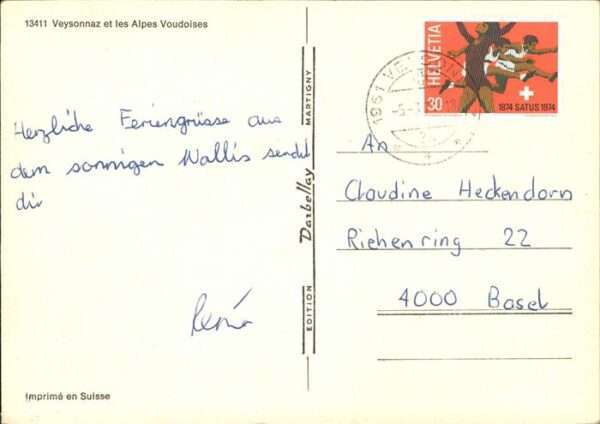 13411 Veysonnaz et les Alpes Voudoises
HELVETIA
30
1874 SATUS 1974
1961
Herzliche Feriengrüsse aus
dem sonnigen Wallis sendet
dir
EDITION Darbellay MARTIGNY
An
Claudine Heckendorn
Riehenring 22
4000 Basel
Imprimé en Suisse